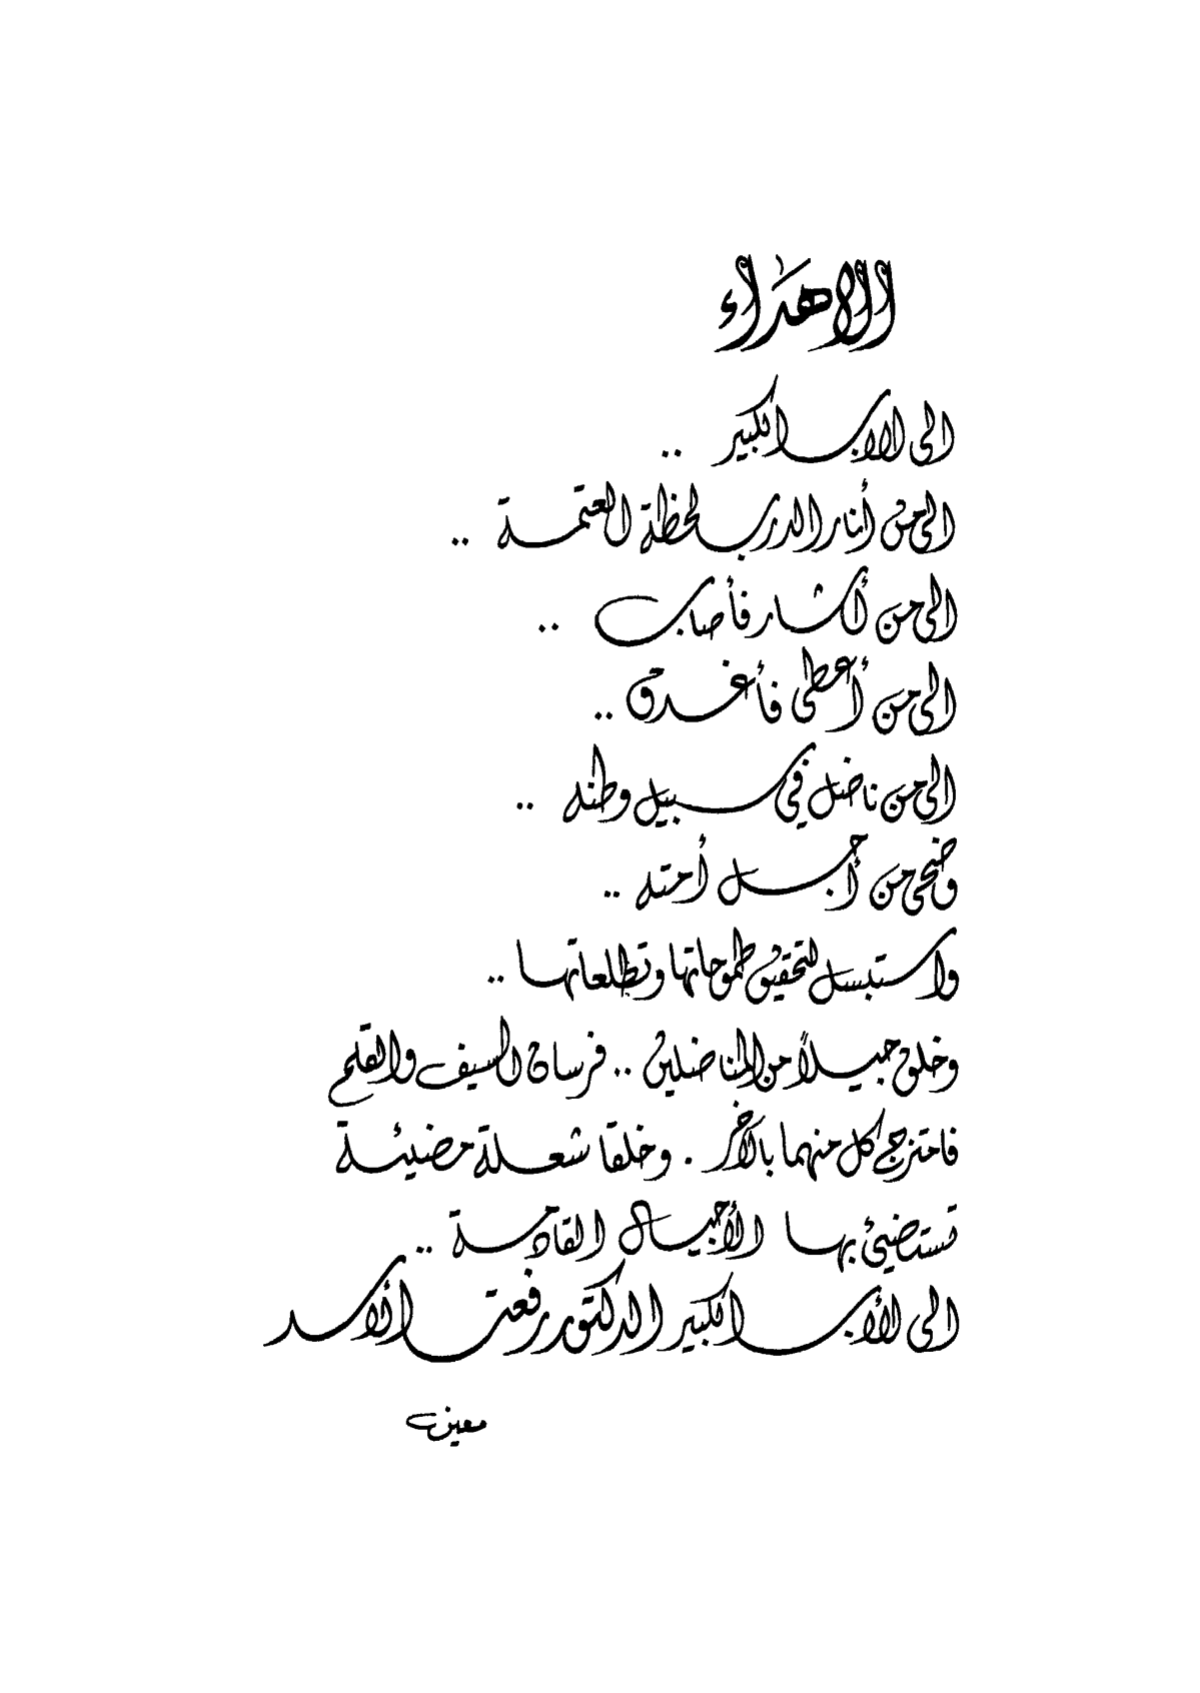 الاهداء
الى الاب الكبير ..
الى من أنار الدرب لحظة العتمة ..
الى من أشار فأصاب ..
الى من أعطى فأغدق ..
الى من ناضل في سبيل وطنه ..
وضحى من أجل أمته ..
واستبسل لتحقيق طموحاتها وتطلعاتها ..
وخلق جيلاً من المناضلين .. فرسان السيف والقلم
فامتزج كل منهما بالآخر . وخلقا شعلة مضيئة
تستضيئ بها الأجيال القادمة ..
الى الأب الكبير الدكتور رفعت الأسد
معين